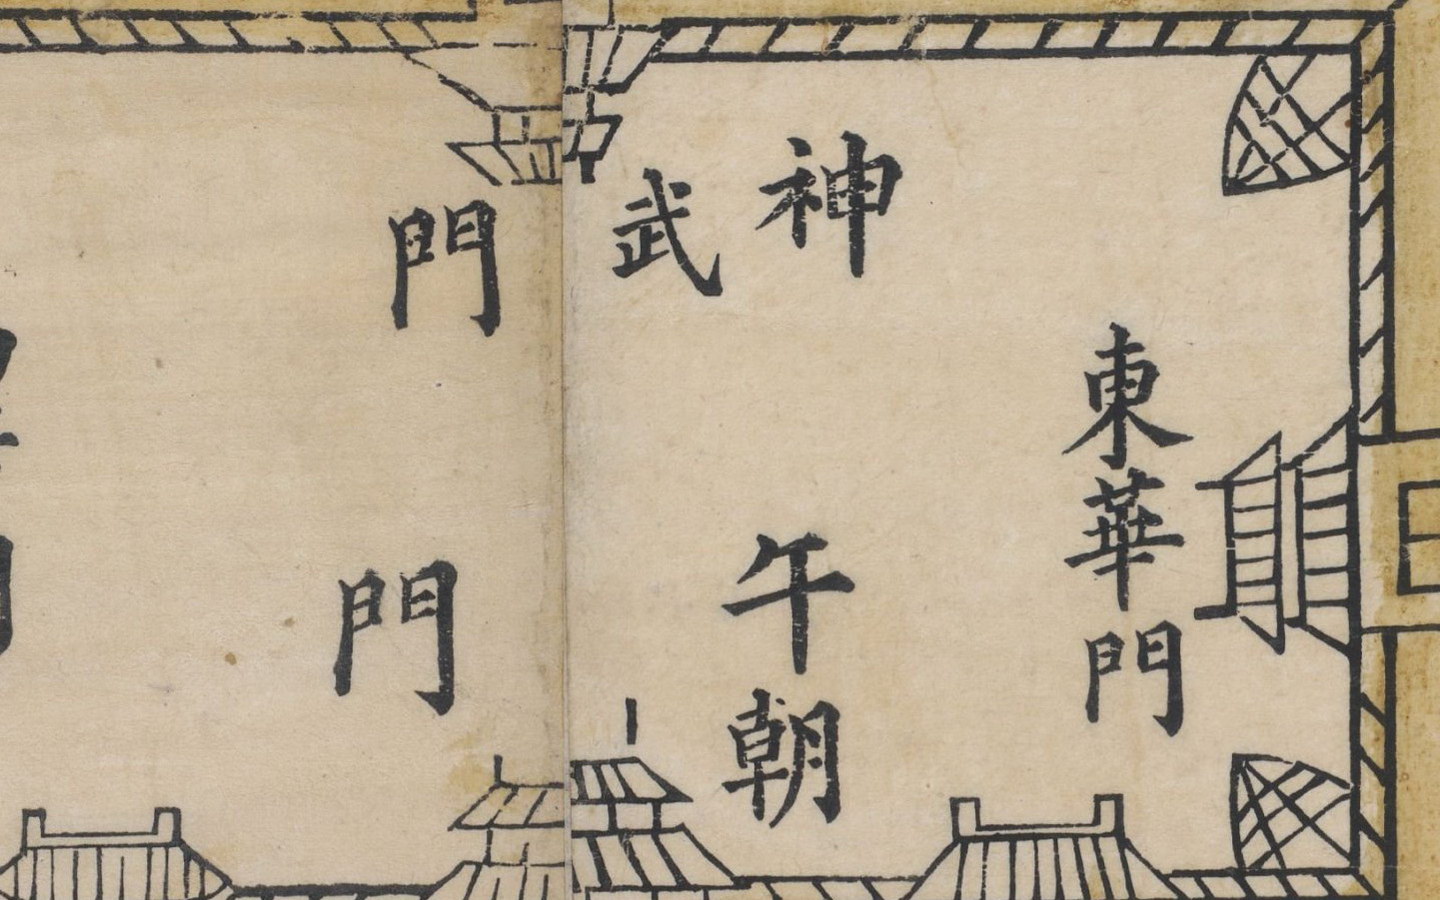 神武門
東華門
午門
朝